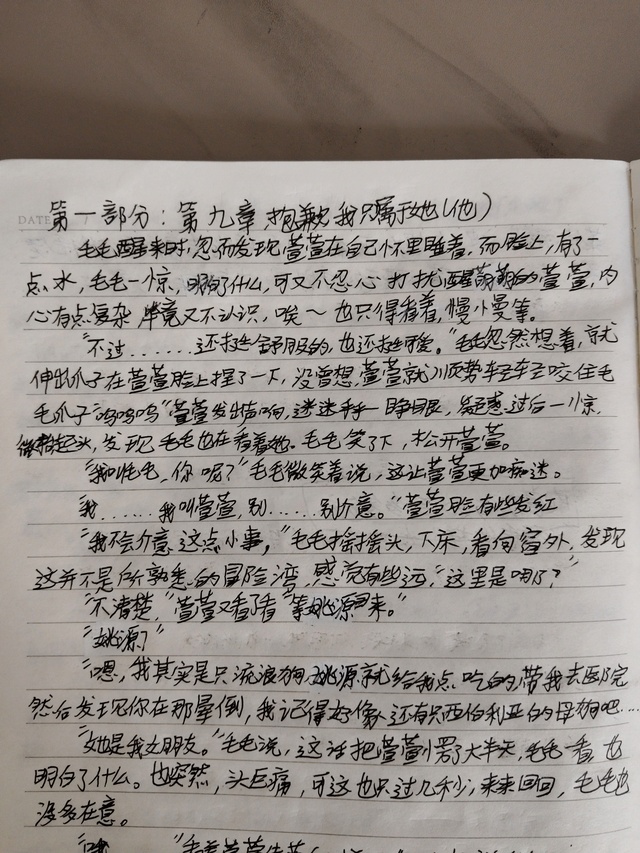 DATE
第一部分：第九章，抱歉，我只属于她（他）
毛毛醒来时，忽而发现萱萱在自己怀里睡着，而脸上，有了一
点水，毛毛一惊，明白了什么，可又不忍心打扰萌萌的萱萱，内
心有点复杂，毕竟又不认识，唉～也只得看着，慢慢等。
“不过……还挺舒服的，也还挺可爱。”毛毛忽然想着，就
伸出爪子在萱萱脸上捏了一下，没曾想，萱萱就顺势轻轻咬住毛
毛爪子“呜呜呜”萱萱发出声响，迷迷糊糊一睁眼，疑惑过后一惊，
微微抬起头，发现毛毛也在看着她。毛毛笑了下，松开萱萱。
“我叫毛毛，你呢？”毛毛微笑着说，这让萱萱更加痴迷。
“我……我叫萱萱，别……别介意。”萱萱脸有些发红
“我不会介意这点小事，”毛毛摇摇头，下床，看向窗外，发现
这并不是所熟悉的冒险湾，感觉有些远，“这里是哪？”
“不清楚，”萱萱又看了看“等姚源回来。”
“姚源？”
“嗯，我其实是只流浪狗，姚源就给我点吃的，带我去医院
然后发现你在那晕倒，我记得好像还有只西伯利亚的母狗吧…
“她是我女朋友。”毛毛说，这话把萱萱愣了大半天，毛毛一看，也
明白了什么。也突然，头巨痛，可这也只过几秒，来来回回，毛毛也
没多在意。